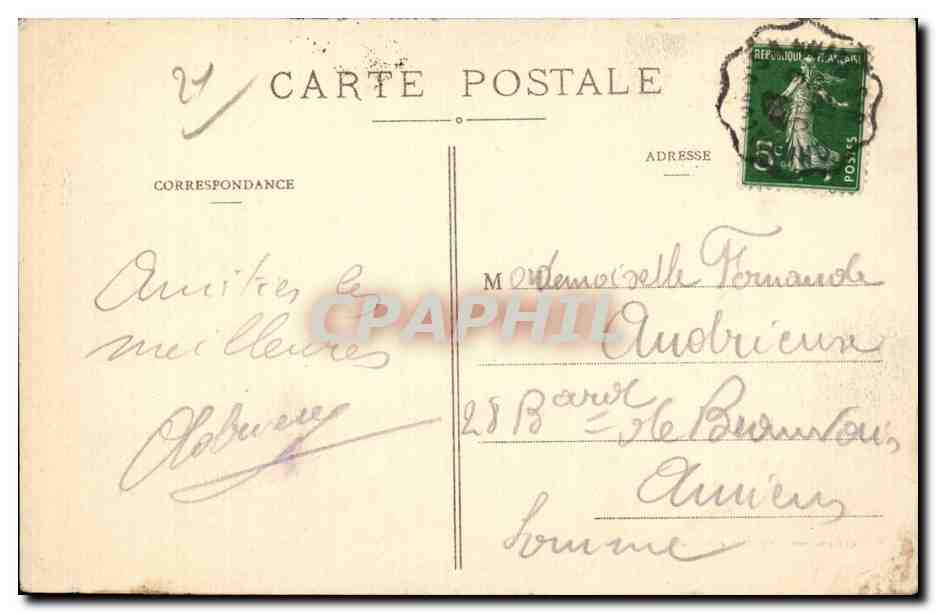 CARTE POSTALE
REPUBLIQUE FRANÇAISE
5c
POSTES
CORRESPONDANCE
ADRESSE
Amitiés les
meilleures
Mademoiselle Fernande
Andrieux
28 Bard de Beauvais
Amiens
Somme
CPAPHIL